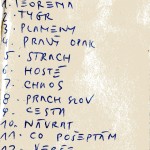 1. TEOREMA
2. TYGR
3. PLAMENY
4. PRAVÝ OPAK
5. STRACH
6. HOSTÉ
7. CHAOS
8. PRACH SLOV
9. CESTA
10. NÁVRAT
11. CO POŠEPTÁM
12.